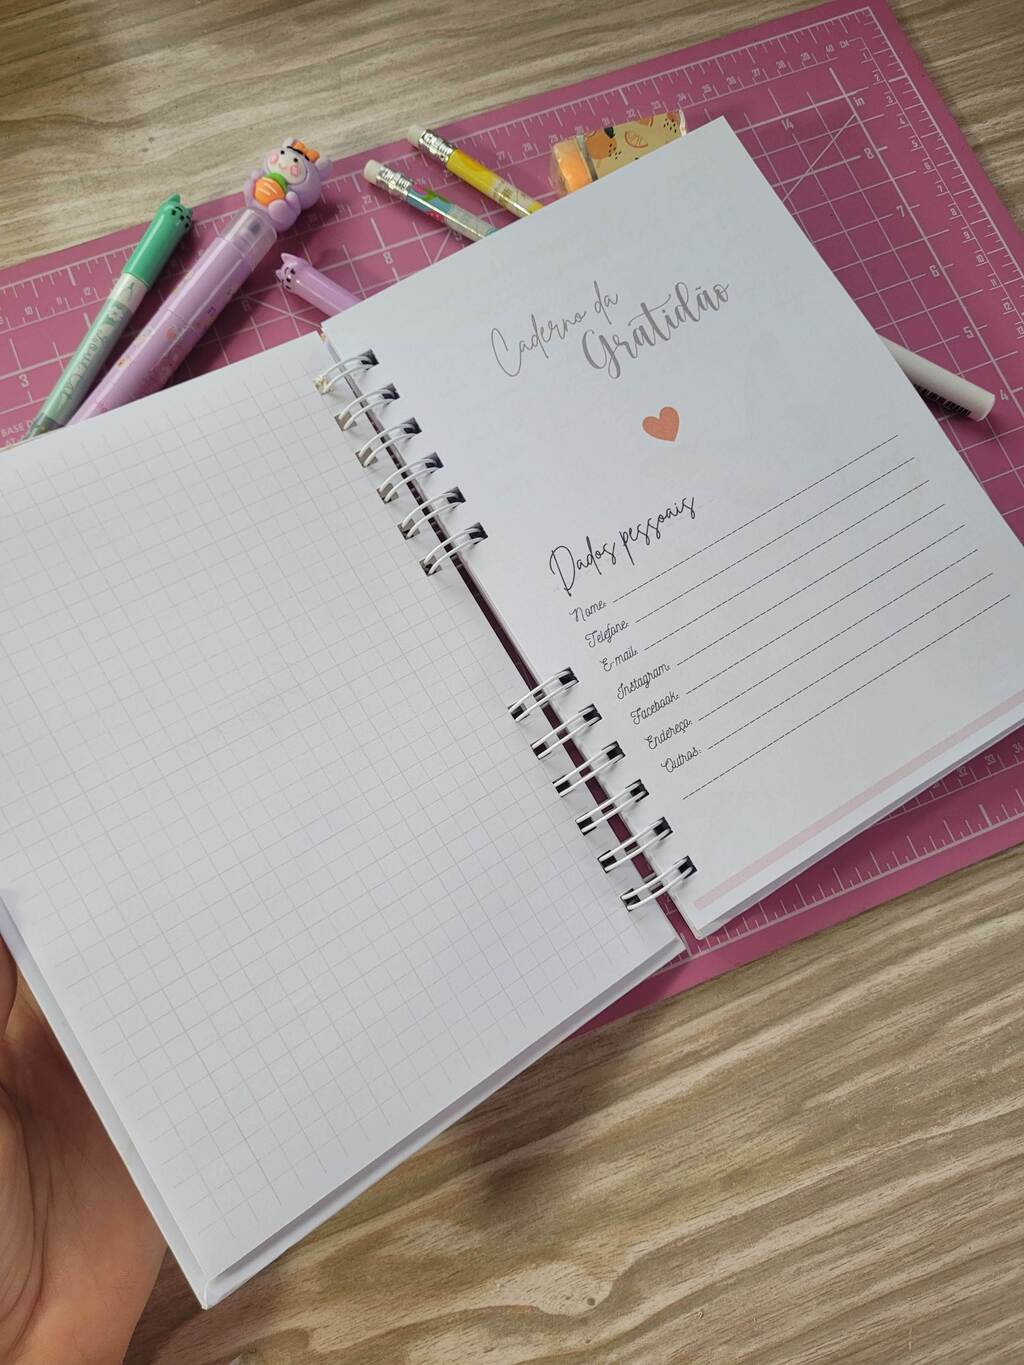 Caderno da
Gratidão
Dados pessoais
Nome:
Telefone:
E-mail:
Instagram:
Facebook:
Endereço:
Outros: